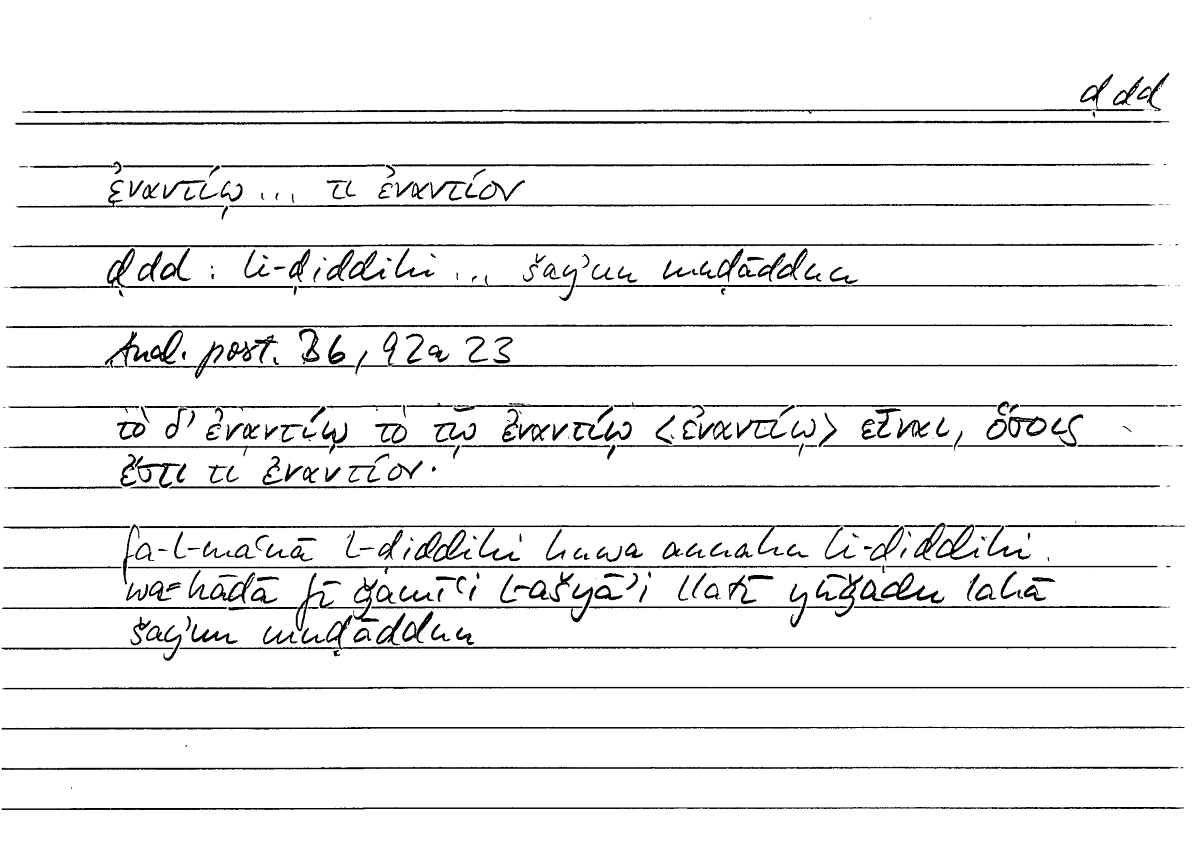 ḍdd
ἐναντίῳ ... τι ἐναντίον
ḍdd : li-ḍiddihi ... šayʾun muḍāddun
Anal. post. B6, 92a 23
τὸ δ' ἐναντίῳ τὸ τῷ ἐναντίῳ <ἐναντίῳ> εἶναι, ὅσοις
ἔστι τι ἐναντίον.
fa-l-maʿnā l-ḍiddihi huwa annahu li-ḍiddihi.
wa-hāḏā fī ǧamīʿi l-ašyāʾi llatī yūǧadu lahā
šayʾun muḍāddun